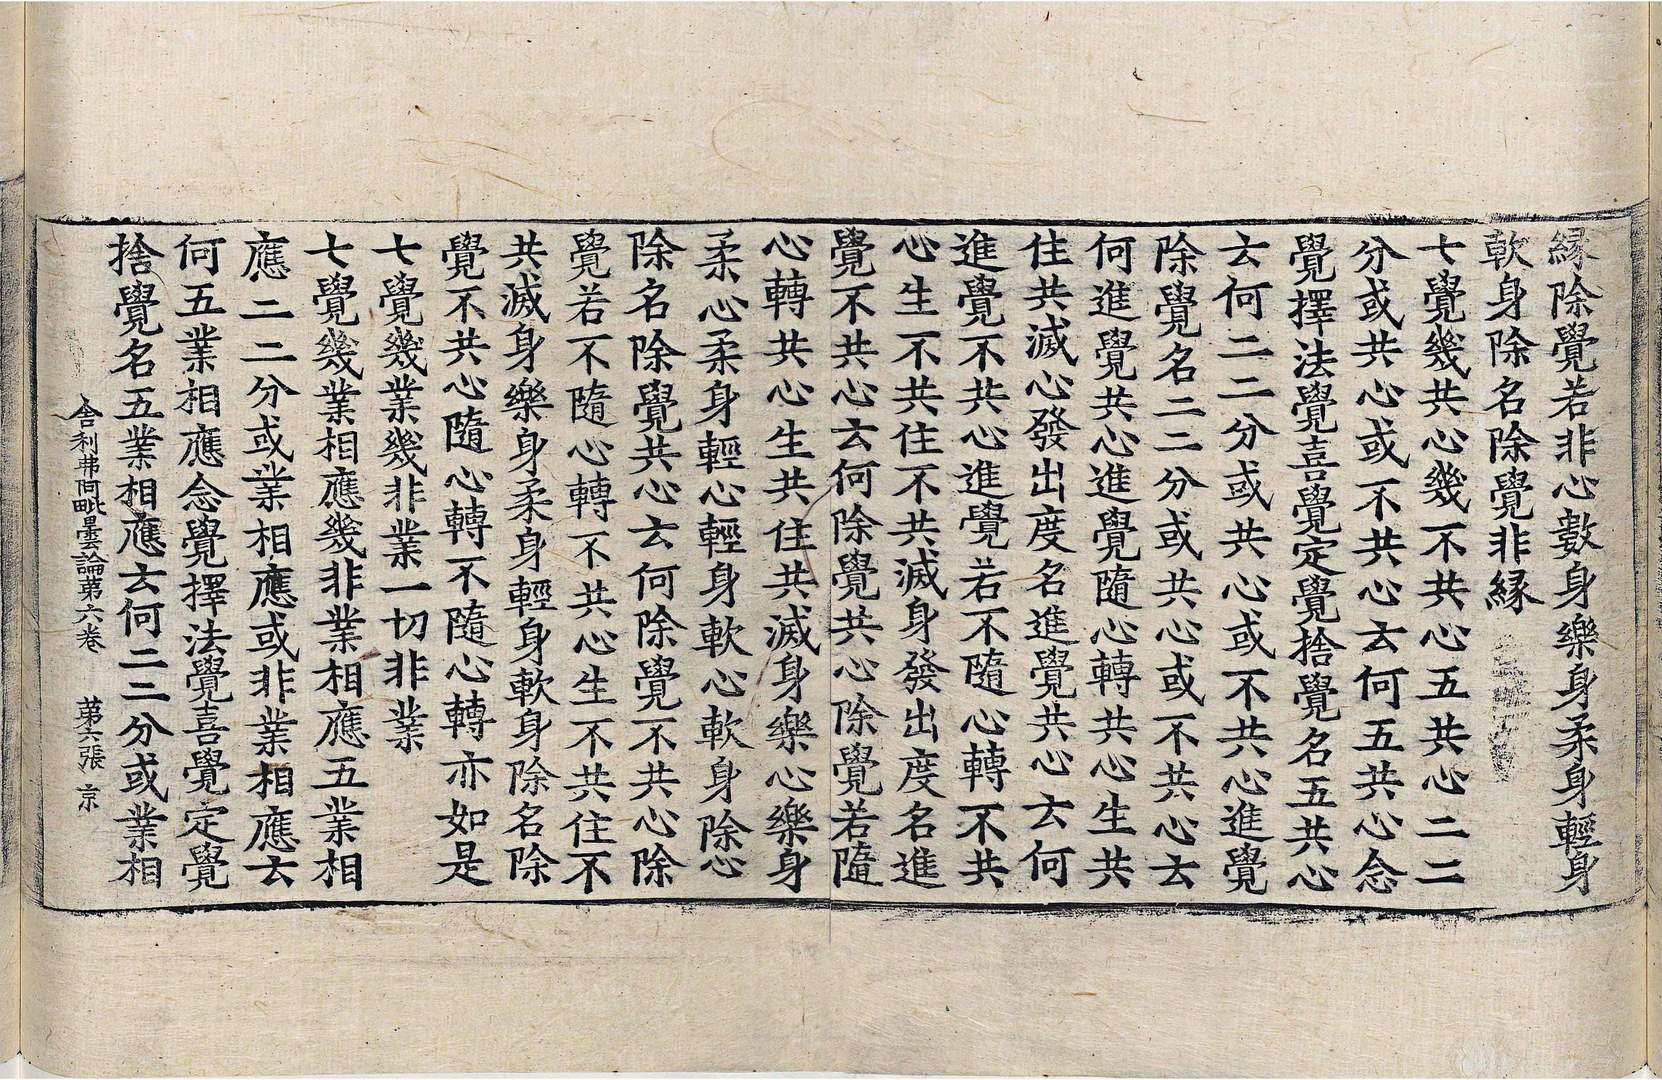 緣除覺若非心數身樂身柔身輕身
軟身除名除覺非緣
七覺幾共心幾不共心五共心二二
分或共心或不共心云何五共心念
覺擇法覺喜覺定覺捨覺名五共心
云何二二分或共心或不共心進覺
除覺名二二分或共心或不共心云
何進覺共心進覺隨心轉共心生共
住共滅心發出度名進覺共心云何
進覺不共心進覺若不隨心轉不共
心生不共住不共滅身發出度名進
覺不共心云何除覺共心除覺若隨
心轉共心生共住共滅身樂心樂身
柔心柔身輕心輕身軟心軟身除心
除名除覺共心云何除覺不共心除
覺若不隨心轉不共心生不共住不
共滅身樂身柔身輕身軟身除名除
覺不共心隨心轉不隨心轉亦如是
七覺幾業幾非業一切非業
七覺幾業相應幾非業相應五業相
應二二分或業相應或非業相應云
何五業相應念覺擇法覺喜覺定覺
捨覺名五業相應云何二二分或業相
舍利弗阿毗曇論第六卷 第六張 京